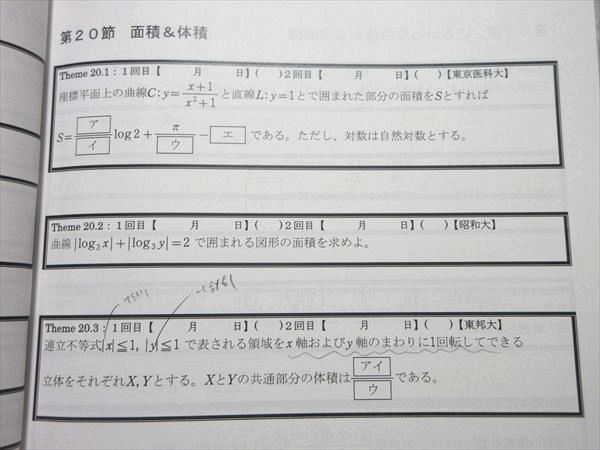 第20節 面積&体積
Theme 20.1：1回目【 月 日】( )2回目【 月 日】( )【東京医科大】
座標平面上の曲線C: y=(x+1)/(x²+1) と直線L: y=1とで囲まれた部分の面積をSとすれば
S=ア/イ log2+π/ウ−エ である。ただし、対数は自然対数とする。
Theme 20.2：1回目【 月 日】( )2回目【 月 日】( )【昭和大】
曲線|log₃x|+|log₃y|=2 で囲まれる図形の面積を求めよ。
Theme 20.3：1回目【 月 日】( )2回目【 月 日】( )【東邦大】
連立不等式|x|≦1, |y|≦1 で表される領域をx軸およびy軸のまわりに1回転してできる
立体をそれぞれX, Yとする。XとYの共通部分の体積はアイ/ウである。